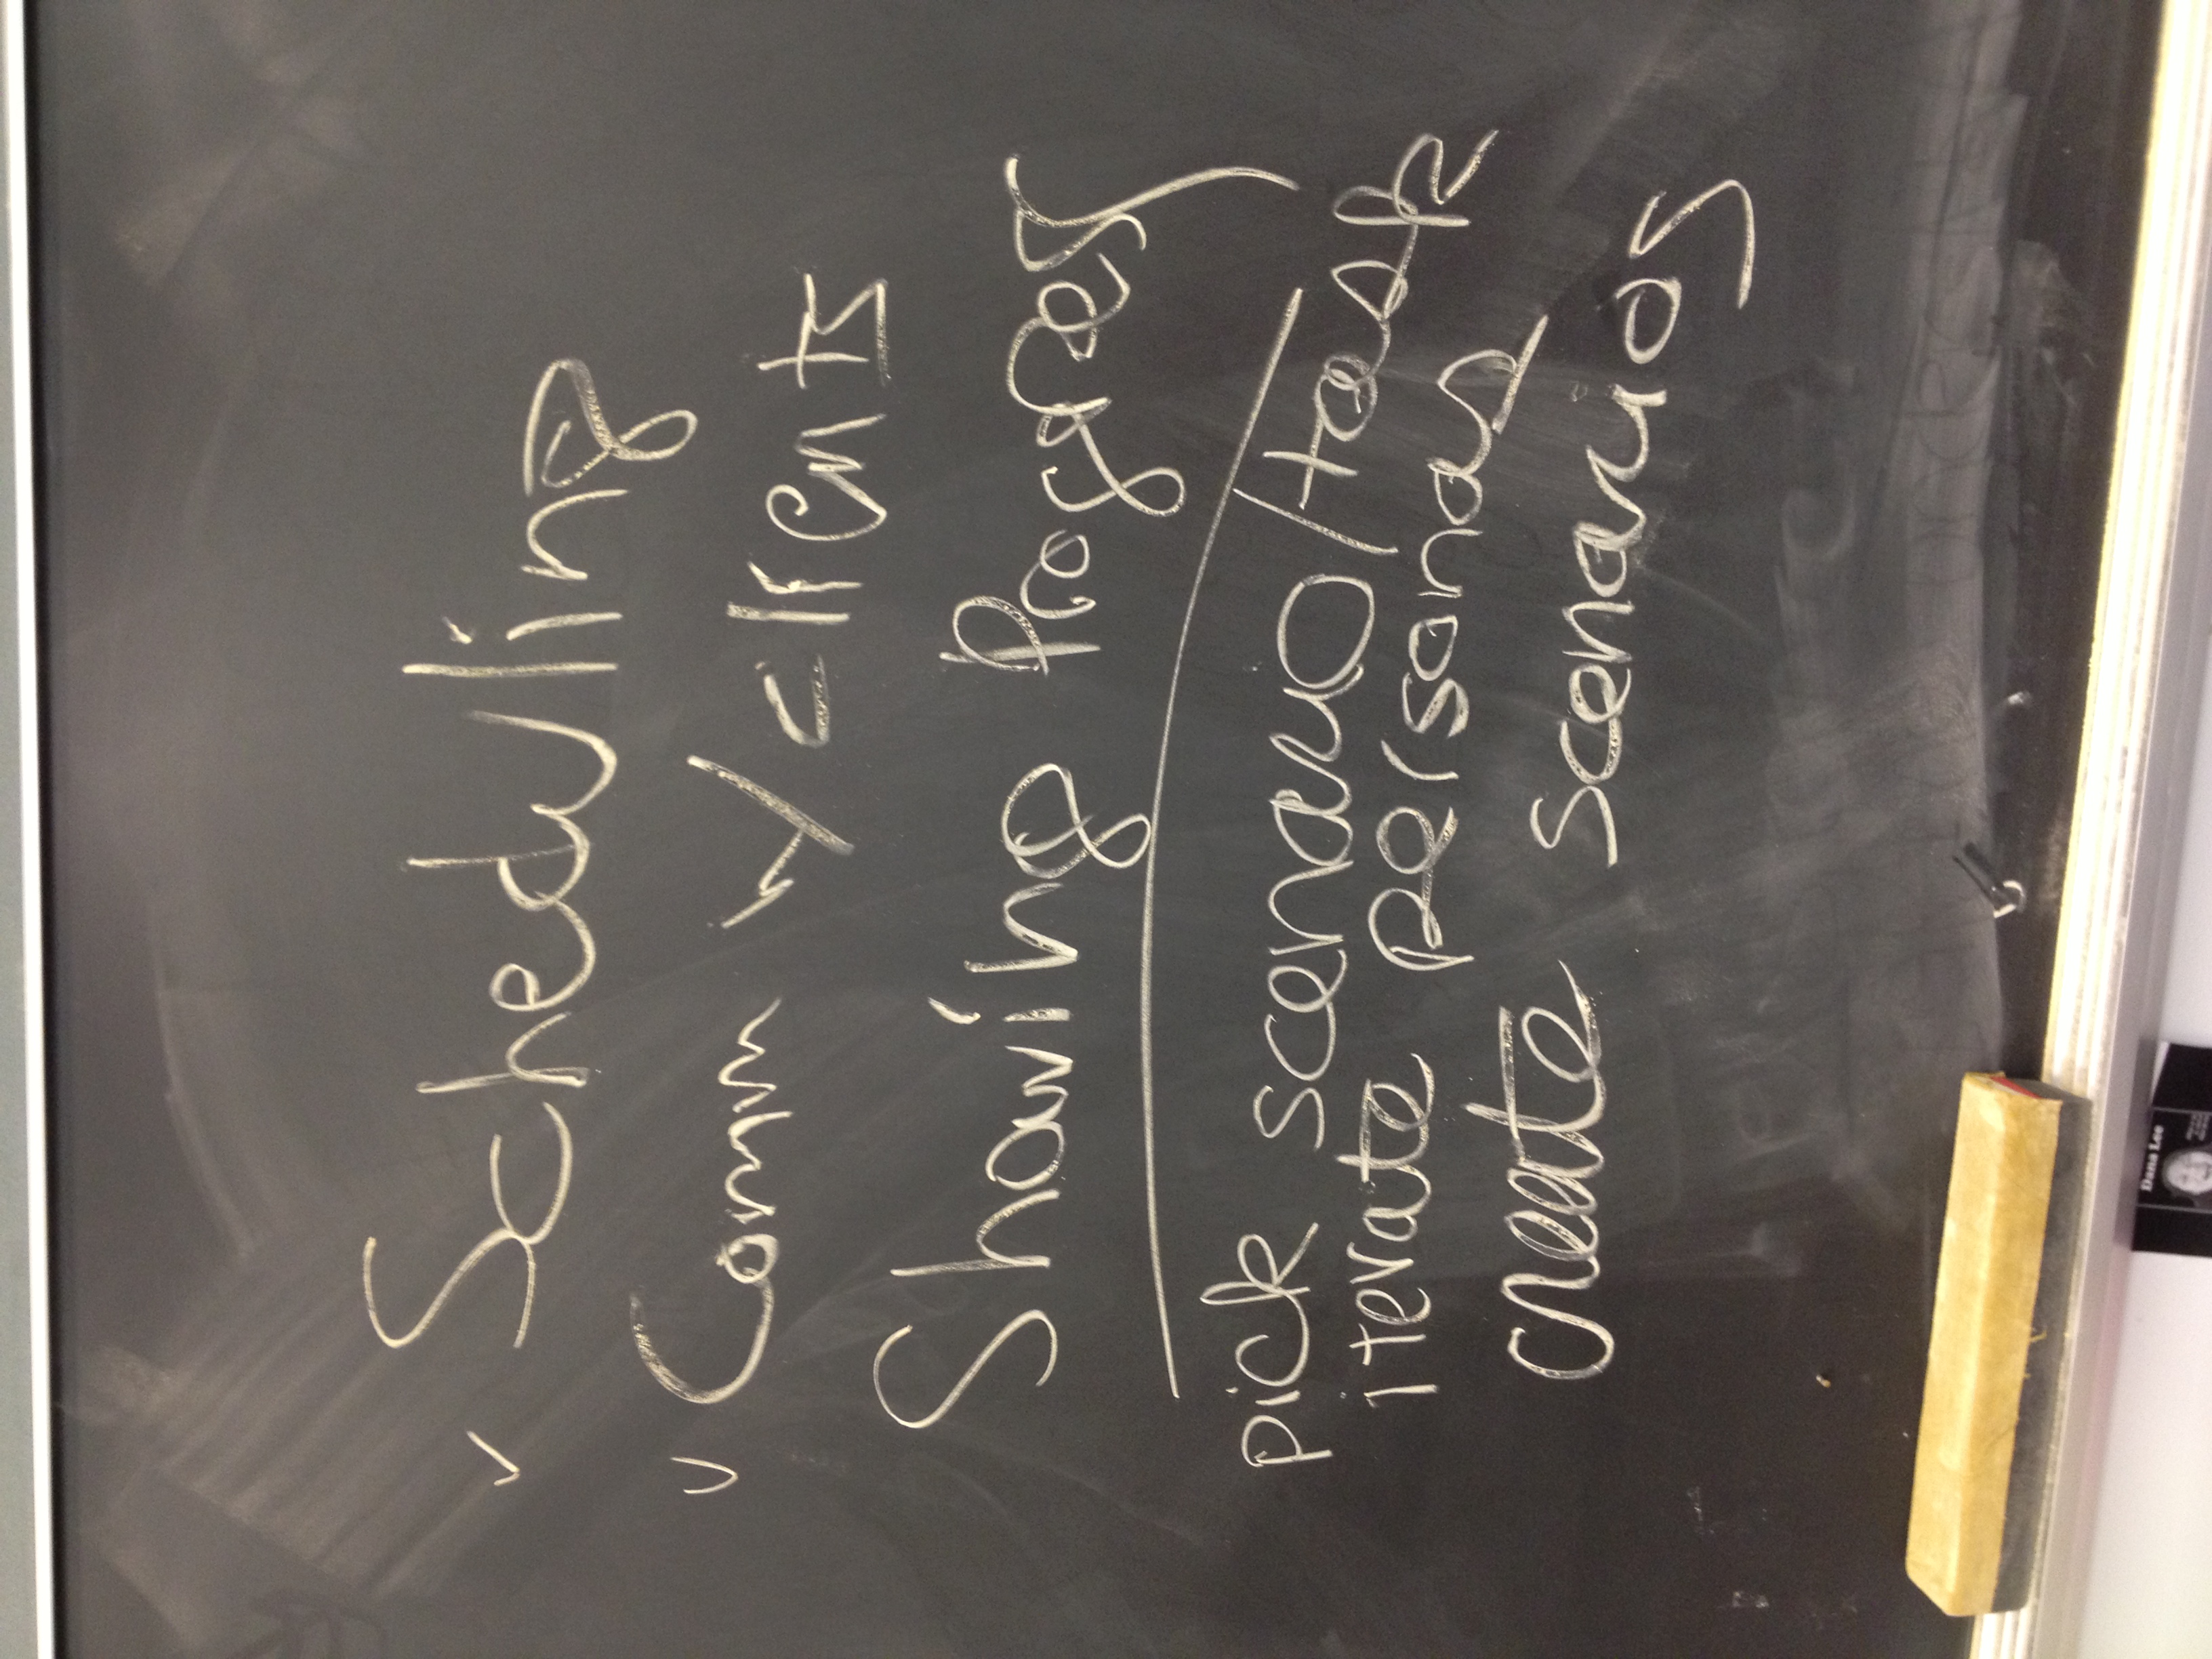 ✓ Scheduling
✓ Comm w/ clients
Showing Progress
pick scenario/task
iterate personas
create scenarios
Dana Lee